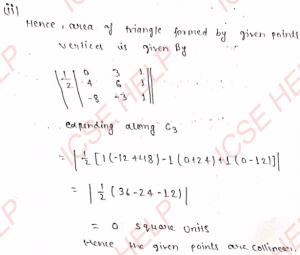 (ii)
Hence, area of triangle formed by given points
vertices is given By
| 1/2 | 0 3 1 |
| 4 6 1 |
| -8 -3 1 | |
expending along C3
= | 1/2 [1(-12+48)-1(0+24)+1(0-12)] |
= | 1/2 (36-24-12) |
= 0 square units
Hence the given points are collinear.
ICSE HELP
ICSE HELP
ICSE HELP
ICSE HELP